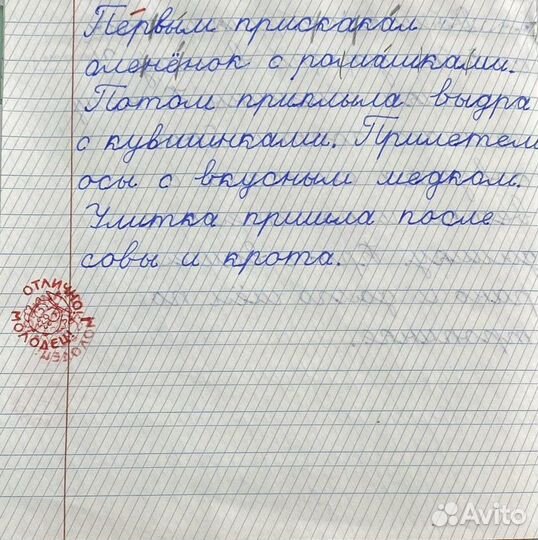 Первым прискакал
оленёнок с ромашками.
Потом приплыла выдра
с кувшинками. Прилетели
осы с вкусным медком.
Улитка пришла после
совы и крота.
ОТЛИЧНО!
МОЛОДЕЦ!
Avito